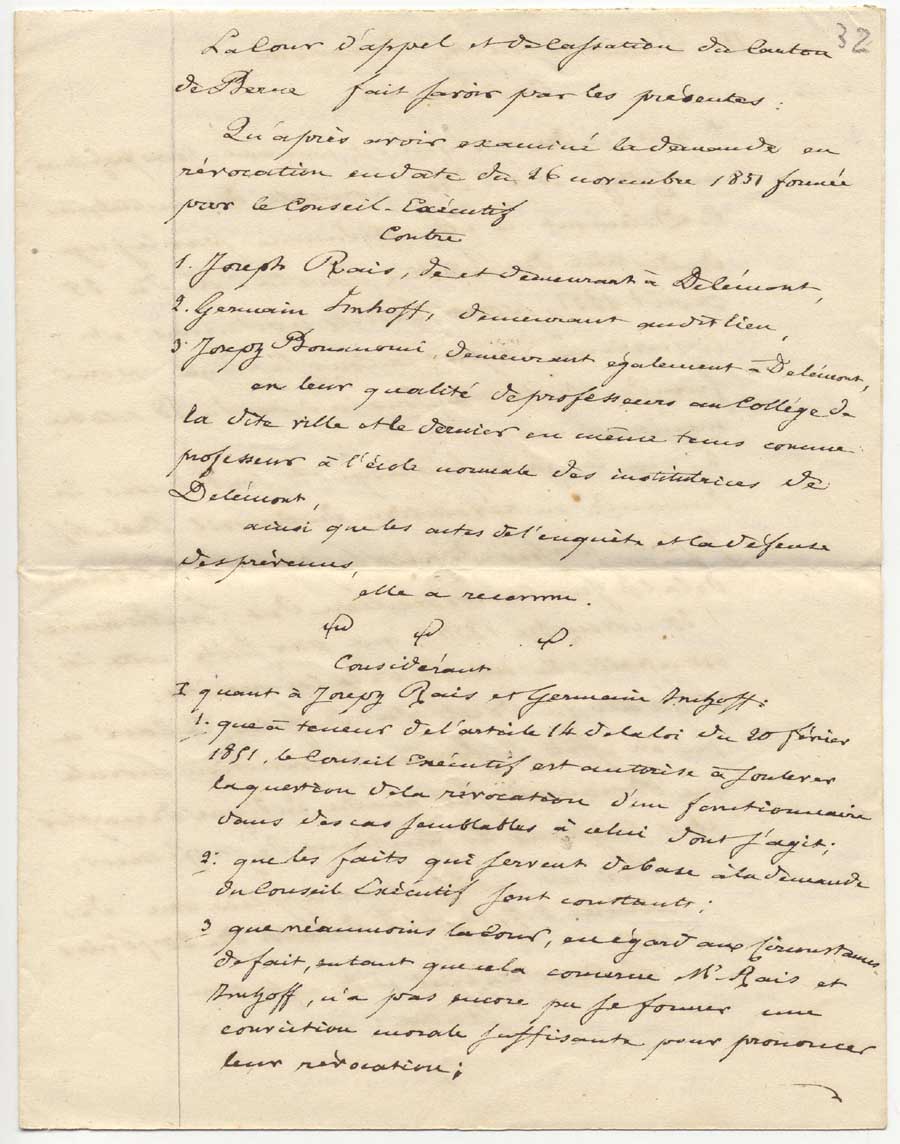 32
La Cour d'appel et de Cassation du Canton
de Berne fait savoir par les présentes:
Qu'après avoir examiné la demande en
révocation en date du 26 novembre 1851 formée
par le Conseil-Exécutif
Contre
1. Joseph Rais, de et demeurant à Delémont,
2. Germain Imhoff, demeurant audit lieu,
3. Joseph Bonanomi, demeurant également à Delémont,
en leur qualité de professeurs au Collége de
la dite ville et le dernier en même tems comme
professeur à l'école normale des institutrices de
Delémont,
ainsi que les actes de l'enquête et la défense
des prévenus,
elle a reconnu.
Considérant
I quant à Joseph Rais et Germain Imhoff:
1. que à teneur de l'article 14 de la loi du 20 février
1851, le Conseil Exécutif est autorisé à soulever
la question de la révocation d'un fonctionnaire
dans des cas semblables à celui dont s'agit;
2. que les faits qui servent de base à la demande
du Conseil Exécutif sont constants;
3 que néanmoins la Cour, eu égard aux Circonstances
de fait, autant que cela concerne Mrs Rais et
Imhoff, n'a pas encore pu se former une
conviction morale suffisante pour prononcer
leur révocation;